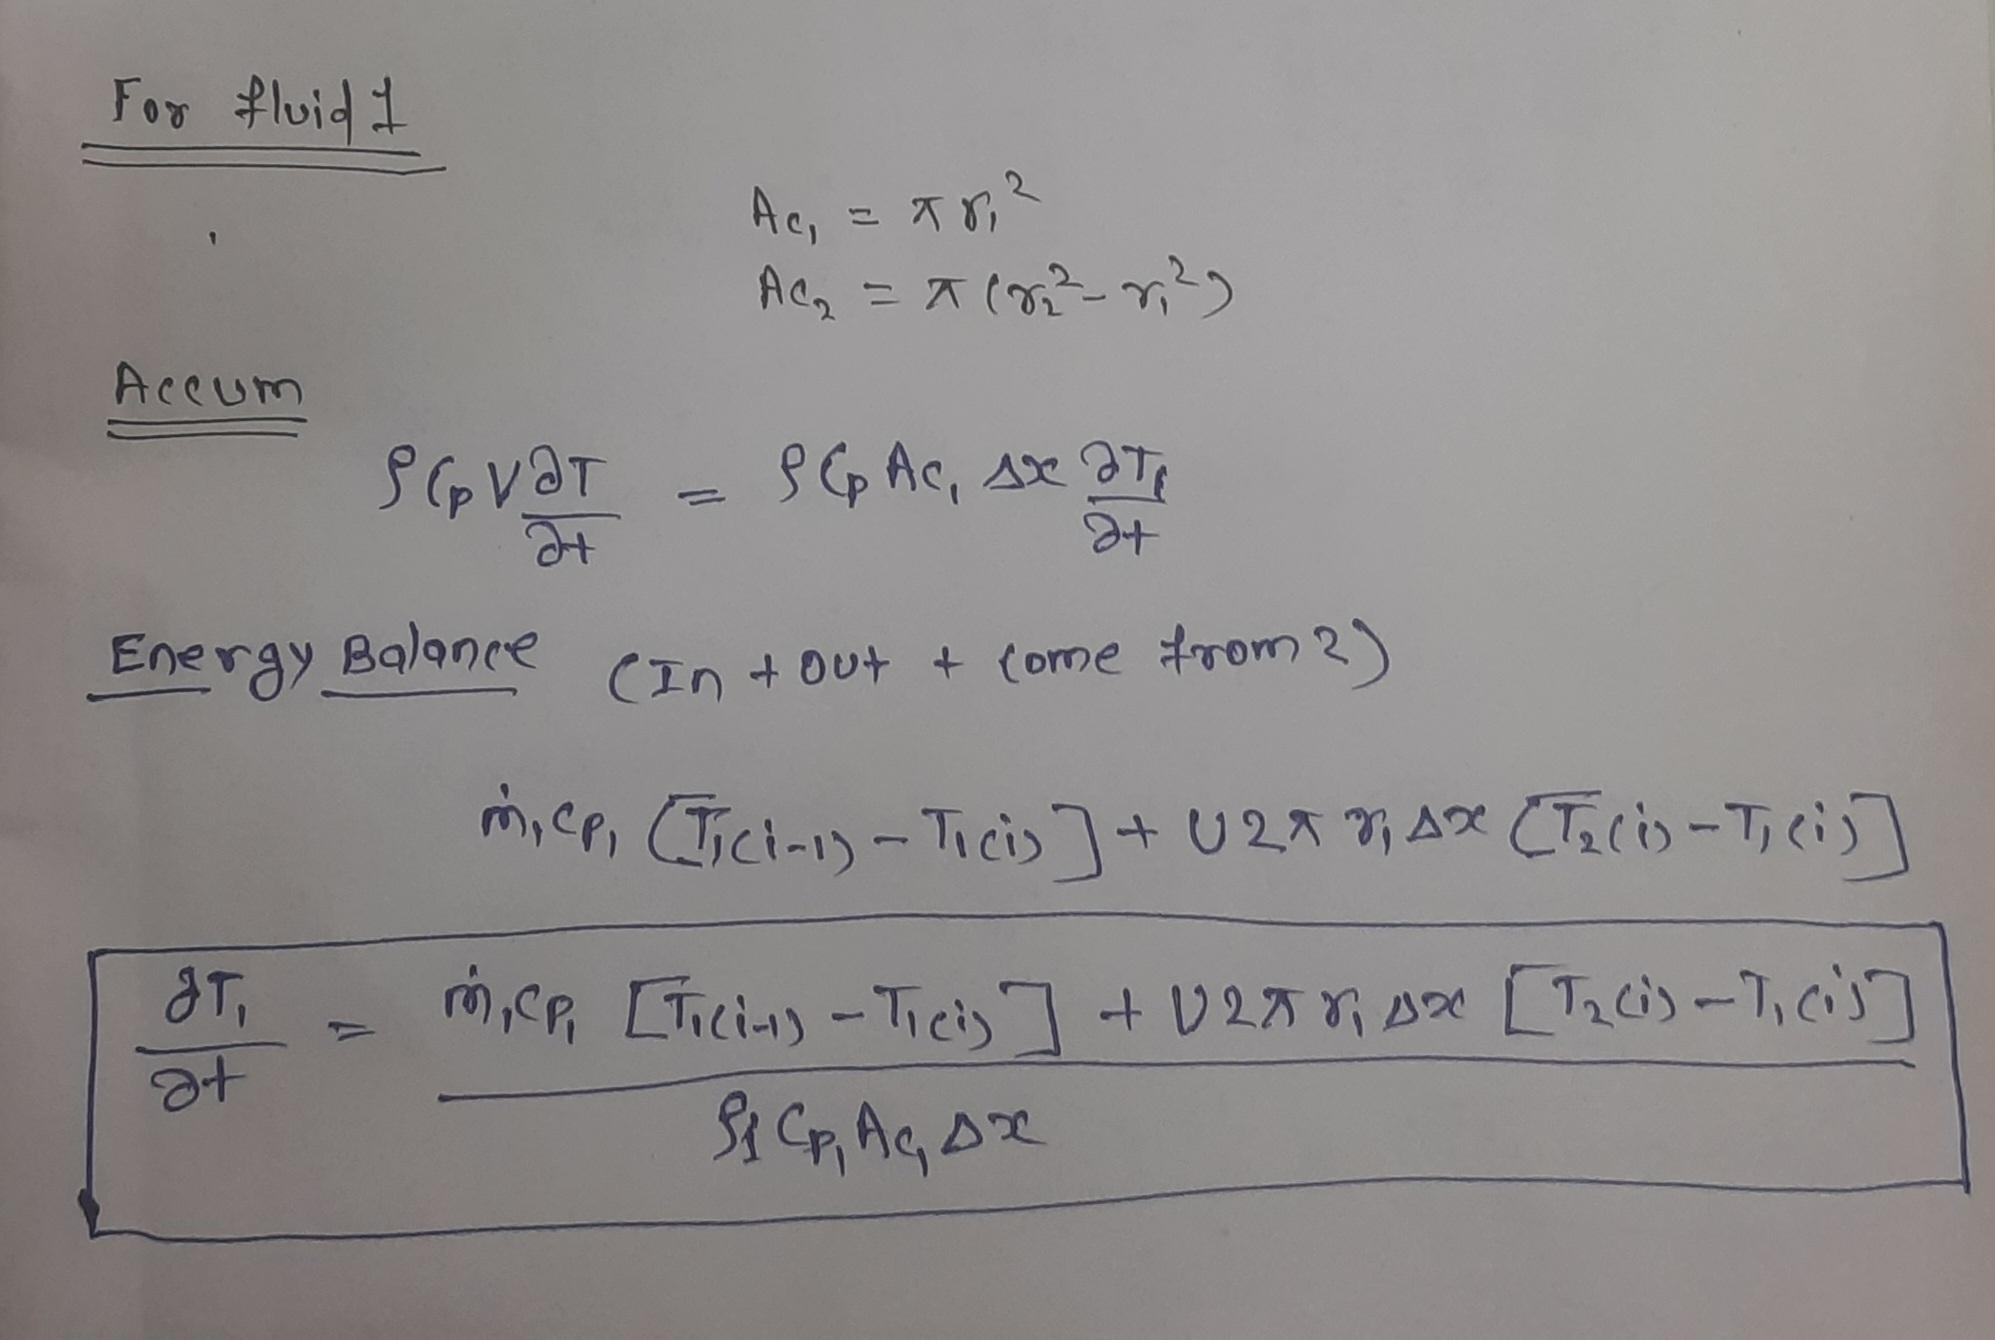 For fluid 1
Ac₁ = π r₁²
Ac₂ = π (r₂² - r₁²)
Accum
ρ Cp V ∂T/∂t = ρ Cp Ac₁ Δx ∂T₁/∂t
Energy Balance (In + out + come from 2)
ṁ₁ cp₁ [T₁(i-1) - T₁(i)] + U 2π r₁ Δx [T₂(i) - T₁(i)]
∂T₁/∂t = ṁ₁ cp₁ [T₁(i-1) - T₁(i)] + U 2π r₁ Δx [T₂(i) - T₁(i)] / ρ₁ Cp₁ Ac₁ Δx